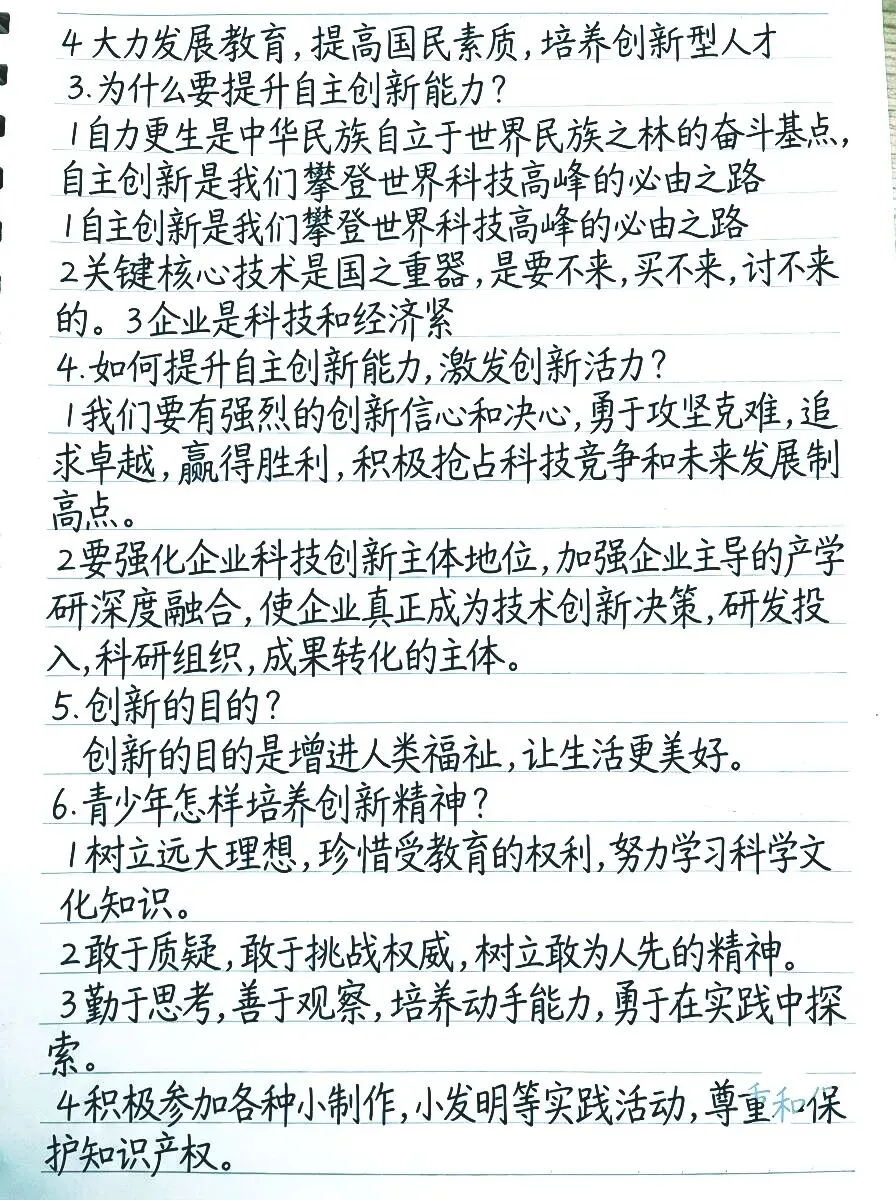 4大力发展教育,提高国民素质,培养创新型人才
3.为什么要提升自主创新能力?
1自力更生是中华民族自立于世界民族之林的奋斗基点,
自主创新是我们攀登世界科技高峰的必由之路
1自主创新是我们攀登世界科技高峰的必由之路
2关键核心技术是国之重器,是要不来,买不来,讨不来
的。3企业是科技和经济紧
4.如何提升自主创新能力,激发创新活力?
1我们要有强烈的创新信心和决心,勇于攻坚克难,追
求卓越,赢得胜利,积极抢占科技竞争和未来发展制
高点。
2要强化企业科技创新主体地位,加强企业主导的产学
研深度融合,使企业真正成为技术创新决策,研发投
入,科研组织,成果转化的主体。
5.创新的目的?
创新的目的是增进人类福祉,让生活更美好。
6.青少年怎样培养创新精神?
1树立远大理想,珍惜受教育的权利,努力学习科学文
化知识。
2敢于质疑,敢于挑战权威,树立敢为人先的精神。
3勤于思考,善于观察,培养动手能力,勇于在实践中探
索。
4积极参加各种小制作,小发明等实践活动,尊重和保
护知识产权。